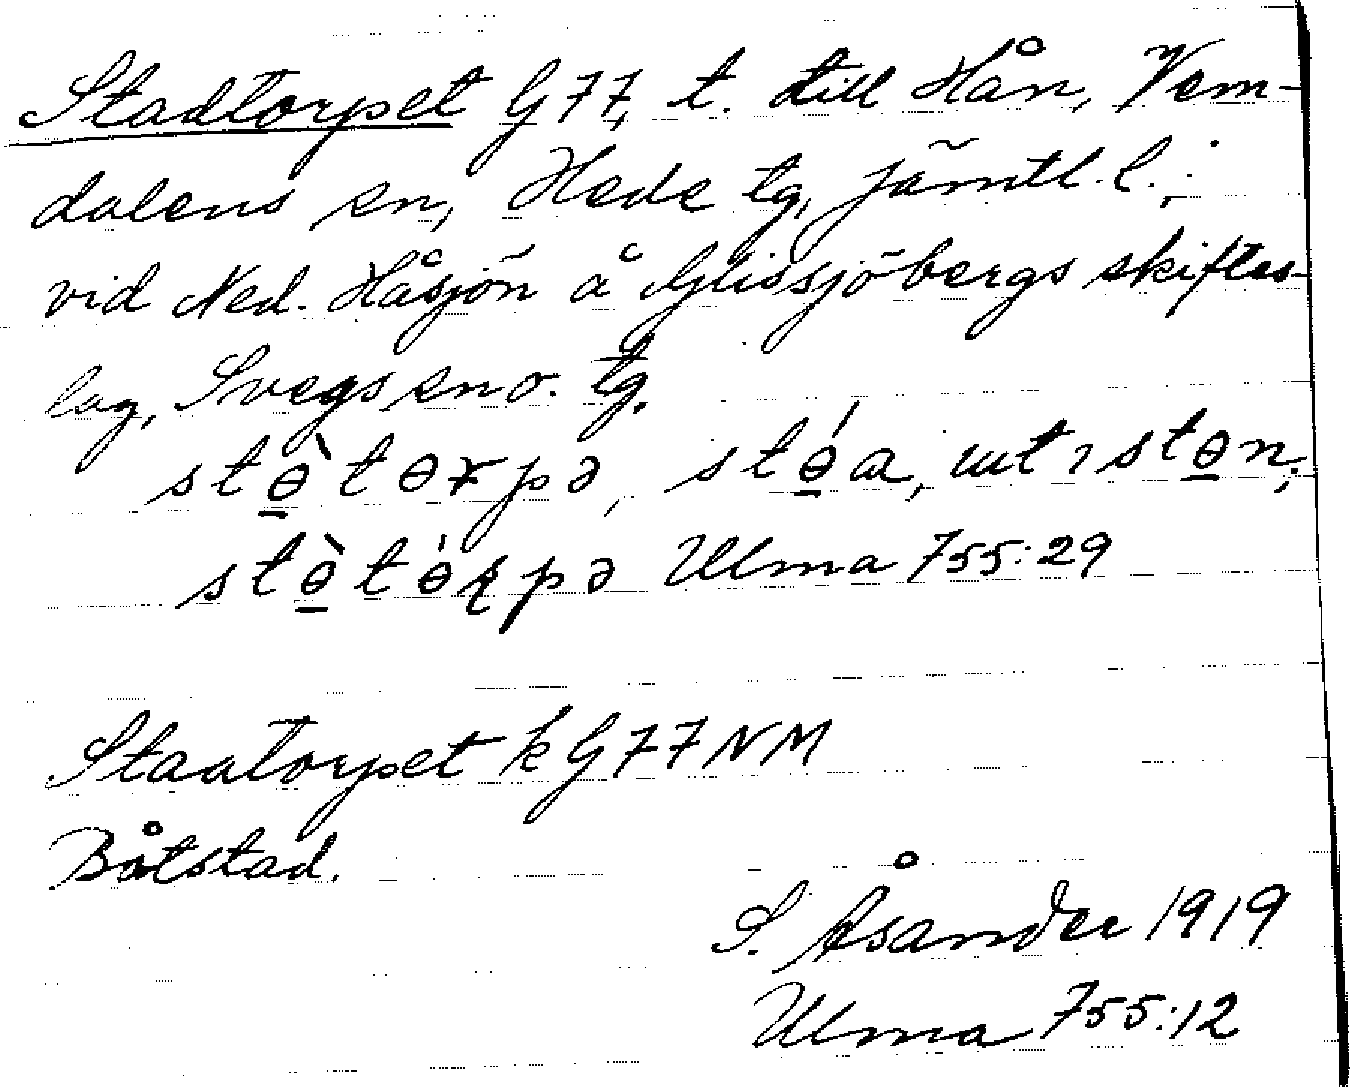 Stadtorpet G77, t. till Hån, Vem-
dalens sn, Hede tg, Jämtl. l.;
vid Ned. Håsjön å Glissjöbergs skiftes-
lag, Svegs sn o. tg.
stɵ̠̀tɵrpə, stɵ̠́a, utɪstɵ̠n;
stɵ̠̀tɵ́rpə Ulma 755:29
Staatorpet k G77NM
Båtstad.
S. Åsander 1919
Ulma 755:12